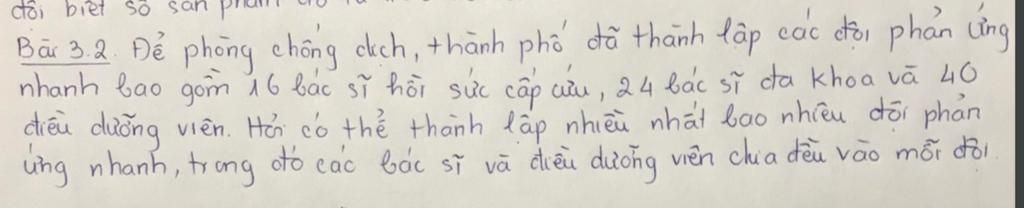 đôi biết số sản phẩm
Bài 3.2. Để phòng chống dịch, thành phố đã thành lập các đội phản ứng
nhanh bao gồm 16 bác sĩ hồi sức cấp cứu, 24 bác sĩ đa khoa và 40
điều dưỡng viên. Hỏi có thể thành lập nhiều nhất bao nhiêu đội phản
ứng nhanh, trong đó các bác sĩ và điều dưỡng viên chia đều vào mỗi đội.